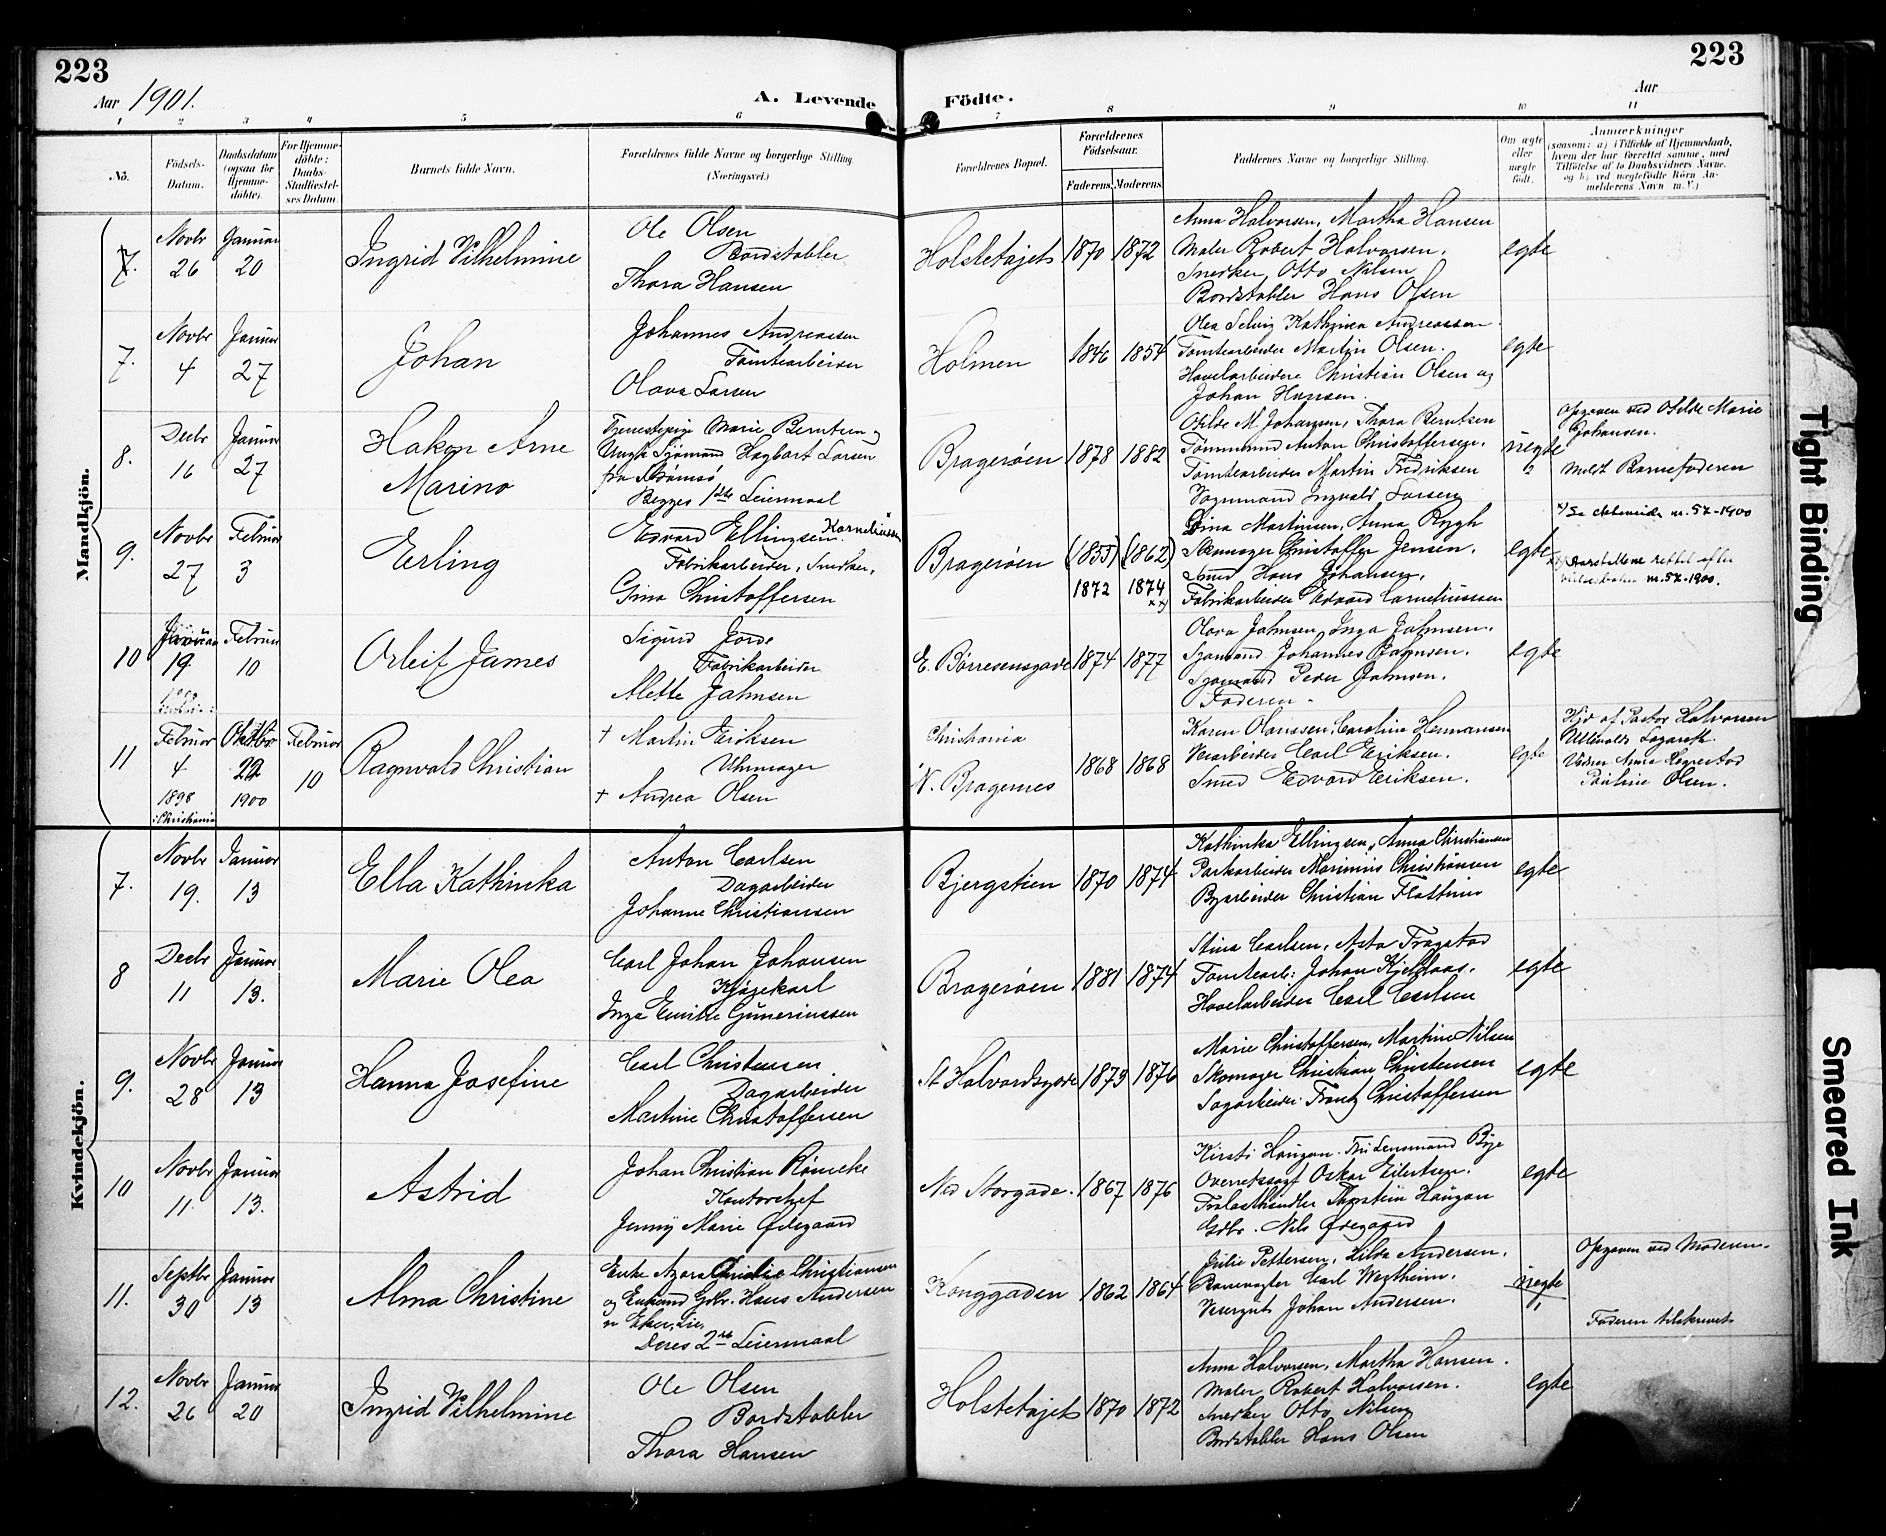 223
223
Aar 1901.
A. Levende Födte.
Aar
1 2 3 4 5 6 7 8 9 10 11
No.
Födsels-Datum.
Daabsdatum (ogsaa for Hjemmedöbte).
For Hjemmedöbte: Daabs-Stadfæstelses Datum.
Barnets fulde Navn.
Forældrenes fulde Navne og borgerlige Stilling. (Næringsvei.)
Forældrenes Bopæl.
Forældrenes Födselsaar.
Faderens. Moderens.
Faddernes Navne og borgerlige Stilling.
Om ægte eller uægte født.
Anmærkninger
(saasom: a) i Tilfælde af Hjemmedaab, hvem der har forrettet samme, med Tilföielse af to Daabsvidners Navne, og b) ved uægtefödte Börn Anmelderens Navn m. V.)
Mandkjön.
7. Novbr 26 Januar 20 Ingrid Vilhelmine
Ole Olsen
Bordstabler
Thora Hansen
Holstetøjet 1870 1872
Anna Halvorsen, Martha Hansen
Maler Robert Halvorsen.
Snedker Otto Nilsen
Bordstabler Hans Olsen
egte
7. Novbr 4 Januar 27 Johan
Johannes Andreassen
Tomtearbeider
Olava Larsen
Holmen 1846 1854
Olea Selvig Kathrina Andreassen
Tomtearbeider Martin Olsen.
Høvelarbeidere Christian Olsen og
Johan Hansen.
egte
8. Decbr 16 Januar 27 Hakon Arne
Marino
Tjenestepige Marie Berntsen og
Ungk. Sjømand Dagbart Larsen
fra Strømsø
Begges 1ste Leiermaal
Bragerøen 1878 1882
Otilde M Johansen, Thora Berntsen
Tømmermand Anton Christoffersen.
Tomtearbeider Martin Fredriksen
Vognmand Ingvald Larsen
uegte
Opgaven ved Otilde Marie
Johansen.
Meldt Barnefaderen
9. Novbr 27 Februar 3 Erling
Edvard Ellingsen. Korneliussen
Fabrikarbeider, Snedker,
Gina Christoffersen
Bragerøen (1855) (1862)
1872 1874
Gina Martinsen, Anna Rygh
Skomager Christoffer Jensen.
Smed Hans Johansen,
Fabrikarbeider Edvard Corneliussen
egte
x) Se nr. 57-1900
xx) Aarstallene rettet efter
nr. 57-1900.
10 Januar 19 Februar 10 Orleif James
Sigurd Jorde
Fabrikarbeider
Alette Jahnsen
E. Børresensgade 1874 1877
Olava Jahnsen, Inga Jahnsen.
Sjømand Johannes Jahnsen.
Sjømand Peder Jahnsen.
Faderen.
egte
11 Februar 4 1898 i Christiania Oktbr 22 1900 Februar 10 Ragnvald Christian
† Martin Eriksen
Uhrmager
† Andrea Olsen
Christiania
N. Bragernes 1868 1868
Karen Olaussen, Caroline Hermansen
Verarbeider Carl Eriksen.
Smed Edvard Eriksen.
egte
Hjd af Pastor Halvorsen
Ullevolds Lazareth.
Vidner Anna Løgnestad
Pauline Olsen.
Kvindekjön.
7. Novbr 19. Januar 13 Ella Kathinka
Anton Carlsen
Dagarbeider
Johanne Christiansen
Bjergstien 1870 1874
Kathinka Ellingsen, Anna Christiansen
Parkarbeider Marinius Christiansen
Byarbeider Christian Flattum
egte
8 Decbr 11 Januar 13. Marie Olea
Carl Johan Johansen
Kjørekarl
Inga Emilie Gunerinssen
Bragerøen 1881 1874
Stina Carlsen, Asta Trøgstad
Tomtearb: Johan Kjeldaas.
Høvelarbeider Carl Carlsen
egte
9. Novbr 28 Januar 13 Hanna Josefine
Carl Christensen.
Dagarbeider
Martine Christoffersen
St Halvardsgade 1873 1876
Marie Christoffersen, Martine Nilsen
Skomager Christian Christensen
Sagarbeider Frantz Christoffersen
egte
10 Novbr 11. Januar 13. Astrid
Johan Christian Rönneke
Kontorchef
Jenny Marie Ødegaard
Ned Storgade. 1867 1876
Kirsti Haugan. Fru Lensmand Bye
Overretssagf Oskar Eilertsen.
Trælasthandler Thorstein Haugan
Gdbr. Nils Ødegaard
egte
11. Septbr 30 Januar 13 Alma Christine
Enke Azora Christiansen
og Enkemd Gdbr. Hans Andersen
Eker, Lier
Deres 2net Leiermaal
Konggaden 1862 1864
Julie Pettersen, Hilda Andersen,
Banevogter Carl Wertheim.
Johan Andersen.
uegte
Opgaven ved Moderen.
Faderen tilskrevet
12. Novbr 26 Januar 20 Ingrid Vilhelmine
Ole Olsen
Bordstabler
Thora Hansen
Holstetøjet 1870 1872
Anna Halvorsen, Martha Hansen.
Maler Robert Halvorsen.
Snedker Otto Nilsen
Bordstabler Hans Olsen
egte
Tight Binding
Smeared Ink